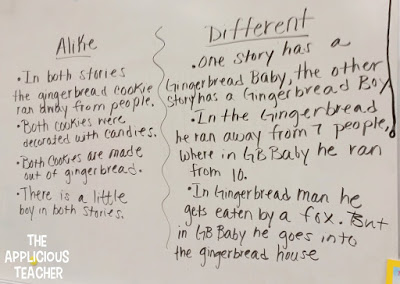 Alike
• In both stories
the gingerbread cookie
ran away from people.
• Both cookies were
decorated with candies.
• Both cookies are made
out of gingerbread.
• There is a little
boy in both stories.
Different
• One story has a
Gingerbread Baby, the other
story has a Gingerbread Boy
• In the Gingerbread
he ran away from 7 people,
where in GB Baby he ran
from 10.
• In Gingerbread man he
gets eaten by a fox. But
in GB Baby he goes into
the gingerbread house
THE
APPLICIOUS
TEACHER